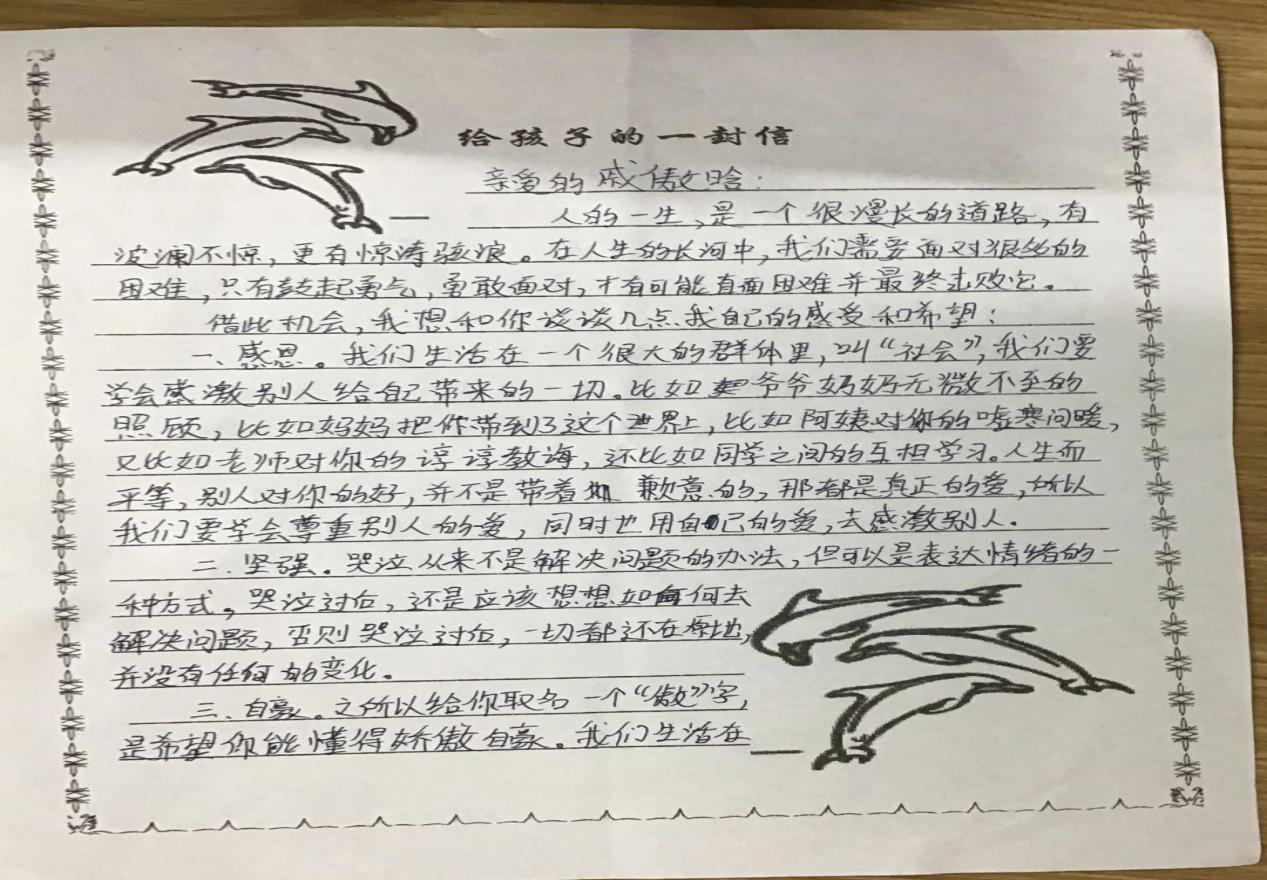 给孩子的一封信
亲爱的戚傲晗：
人的一生，是一个很漫长的道路，有
波澜不惊，更有惊涛骇浪。在人生的长河中，我们需要面对很多的
困难，只有鼓起勇气，勇敢面对，才有可能直面困难并最终击败它。
借此机会，我想和你谈谈几点我自己的感受和希望：
一、感恩。我们生活在一个很大的群体里，叫“社会”，我们要
学会感激别人给自己带来的一切。比如爷爷奶奶无微不至的
照顾，比如妈妈把你带到了这个世界上，比如阿姨对你的嘘寒问暖，
又比如老师对你的谆谆教诲，还比如同学之间的互相学习。人生而
平等，别人对你的好，并不是带着歉意的，那都是真正的爱，所以
我们要学会尊重别人的爱，同时也用自己的爱，去感激别人。
二、坚强。哭泣从来不是解决问题的办法，但可以是表达情绪的一
种方式。哭泣过后，还是应该想想如何去
解决问题，否则哭泣过后，一切都还在原地，
并没有任何的变化。
三、自豪。之所以给你取名一个“傲”字，
是希望你能懂得娇傲自豪。我们生活在